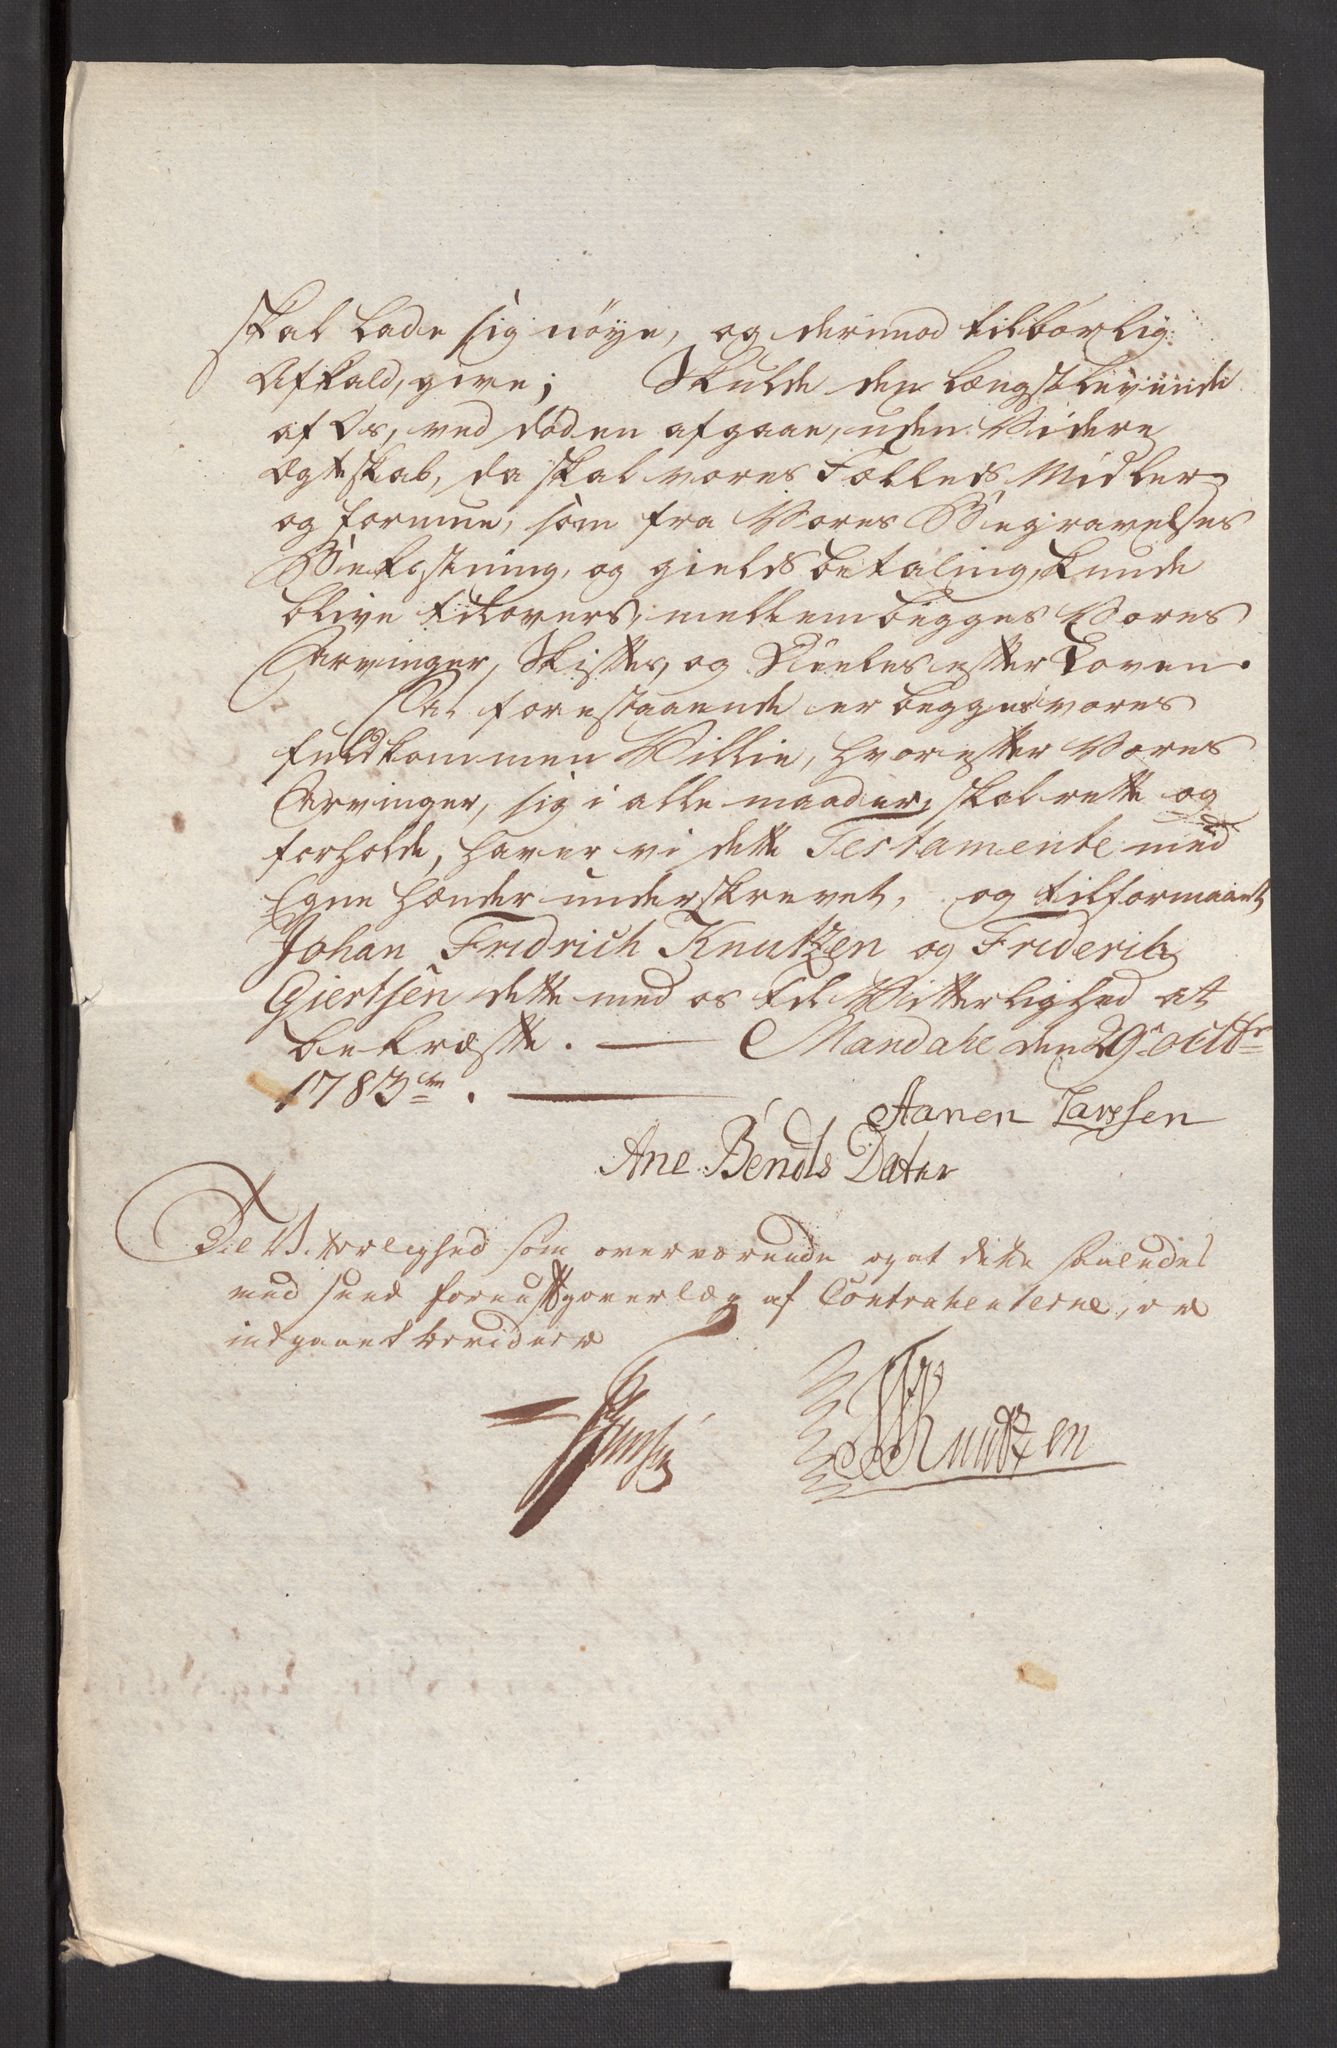 skal lade sig nöye, og derimod tilbörlig
Afkald, give; Skulde den længstlevende
af Os, ved döden afgaae, uden Videre
Ægteskab, da skal vores Fælleds Midler
og formue, som fra Vores Begravelses
Bekostning, og gields betaling, kunde
blive tilovers, mellem begges Vores
Arvinger, Skiftes, og Deeles efter Loven.
At forestaaende er begges vores
fuldkommen Villie, hvorefter Vores
Arvinger, sig i alle maader, skal rette og
forholde, haver vi dette Testamente med
Egne hænder underskrevet, og tilformaaet
Johan Fridrich Knutzen og Friderik
Giertsen dette med os til Vitterlighed at
bekræfte. — Mandahl den 29de Octbr
1783tve. —
Aanen Larssen
Ane Bends Dater
Til Vitterlighed som overværende og at dette saaledes
med sund fornuft og overlæg af Contrahenterne, er
indgaaet bevidner
JFKnutzen